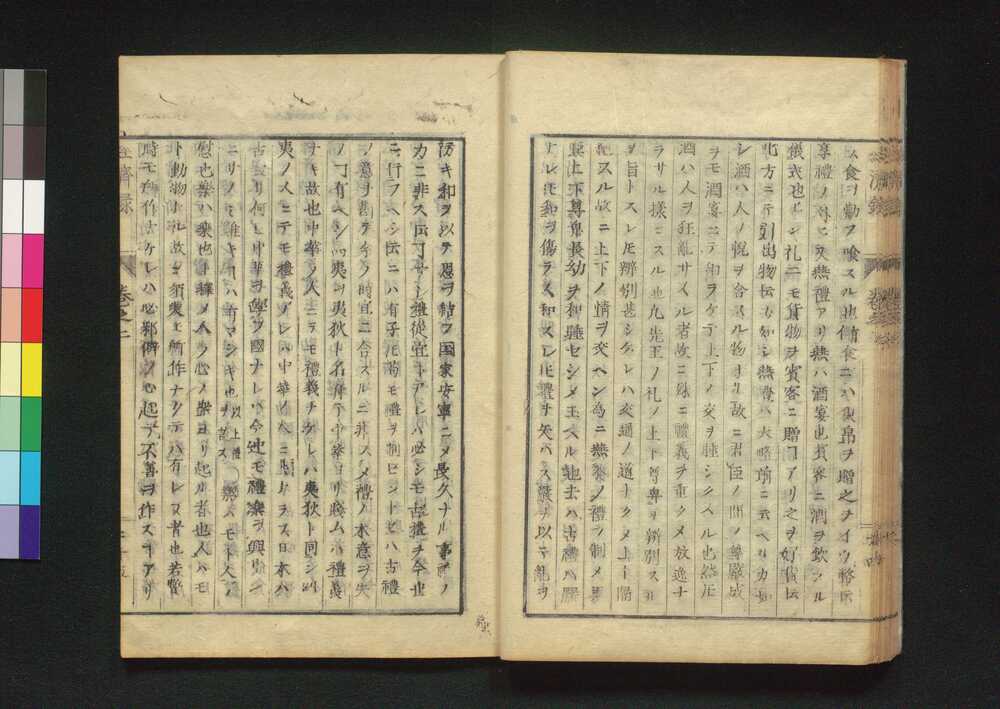 食ヲ勧フ喰スル也侑食ニハ束帛ヲ贈之ヲイウ幣
享禮ノ外ニ又燕禮アリ燕ハ酒宴也賓客ニ酒ヲ飲シル
儀式也凡ソ礼ニモ貨物ヲ賓客ニ贈コアリ之ヲ好貨
此方ニテ引出物
酒ハ人ノ悦ヲ合スル物ナル故ニ君臣ノ間ノ尊厳
ヲモ酒宴ニテ和ラケテ上下ノ交ヲ睦シクヘル也然𪜈
酒ハ人ヲ狂亂サスル者故ニ殊ニ體義ヲ重クメ放逸ナ
ラサル様ニスル也凡先王ノ礼ノ上下尊卑ヲ辨別スル
ヲ旨トスレ𪜈辨別甚シケレハ交通ノ道ナクメ上下隔
絶スル故ニ上下ノ情ヲ交ヘン為ニ燕饗ノ禮ヲ制メ
上下尊卑長幼ヲ和睦セシメ玉ヘル也去ハ古禮ハ嚴
ナレ𪜈和ヲ傷ラス和スレ𪜈禮ヲ失ハス嚴ヲ以テ亂ヲ
防キ和ヲ以テ恩ヲ結フ国家安寧ニメ長久ナル事禮ノ
力ニ非スト云コナシ禮從宜トアレハ必シモ古禮ヲ今世
ニ行フヘシト云ニハ有子𪜈苟モ禮ヲ制センニハ古禮
ノ意ヲ斟テ今ノ時宜ニ合スルニ非スメ禮ノ本意ヲ失
フコ有ヘシ四夷ヲ夷狄ト名ケテ中華ヨリ賤ムハ禮義
ナキ故也中華ノ人ニテモ禮義ナケレハ夷狄ト同シ四
夷ノ人ニテモ禮義アレハ中華ノ人ニ異ナラス日本ハ
古ヨリ何事モ中華ヲ學フ國ナレハ今迚モ禮樂ヲ興サン
コサノミ難キコハ有マシキ也 以上禮ヲ諭ス 樂ハモト人ノ
慰也樂ハ樂也ト釋メ人ノ心ノ樂ヨリ起ル者也人ハモ
ト動物ナル故ニ須臾モ所作ナクテハ有レヌ者也若暫
時モ所作ナケレハ必邪僻ノ心起テ不善ヲ作スコアリ
經濟録
巻之二